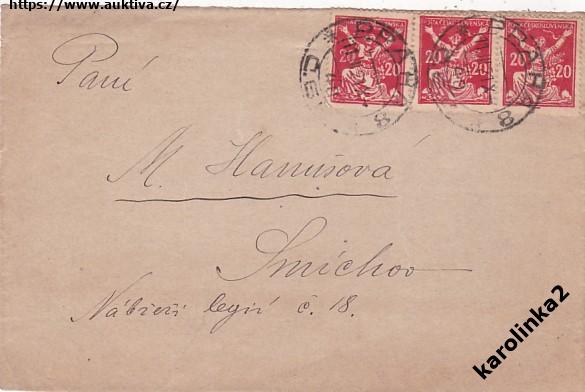 https://www.auktiva.cz/
POŠTA ČESKOSLOVENSKÁ
20 20 20 20 20
PRAHA 8
PRAHA 8
Paní
M. Hanušová
Smíchov
Nábřeží legií č. 18.
karolinka2